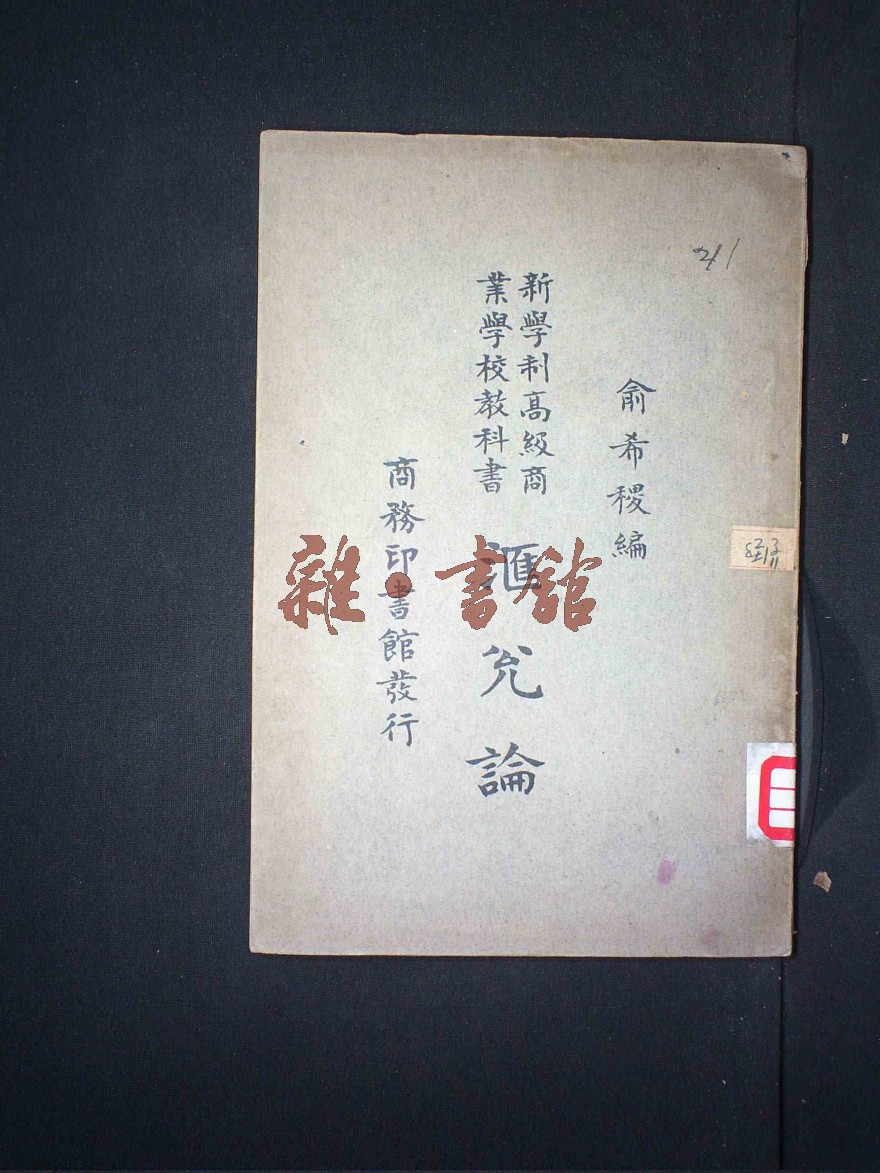 俞希稷編
新學制高級商
業學校教科書
滙兌論
商務印書館發行
雜·書館
41
經濟